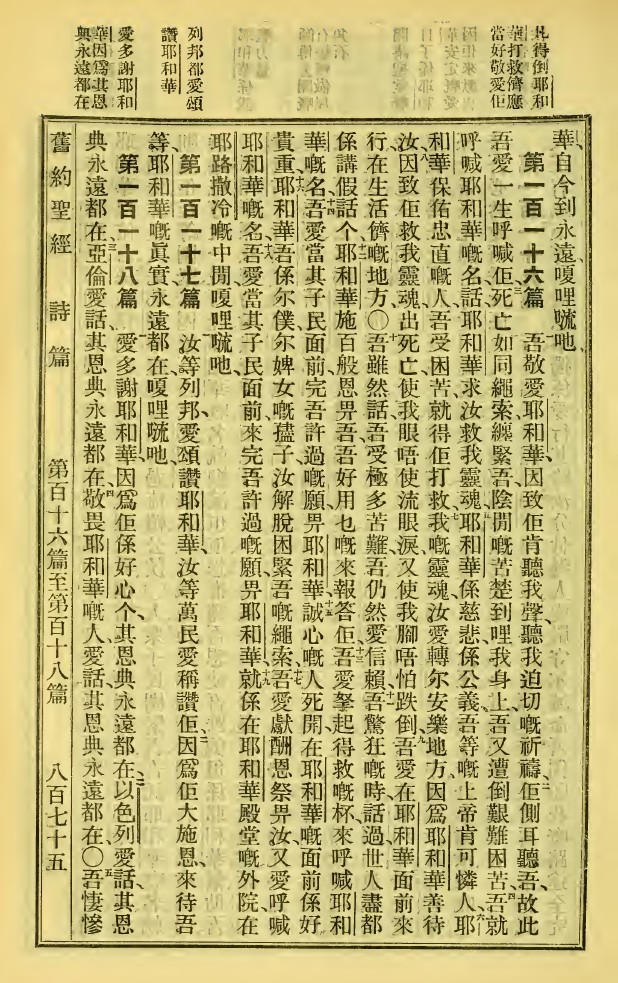 凡得倒耶和
華打救儕應
當好敬愛佢
列邦都愛頌
讚耶和華
愛多謝耶和
華因爲其恩
典永遠都在
華、自今到永遠、嗄哩㖫吔、
第一百一十六篇 吾敬愛耶和華、因致佢肯聽我聲、聽我迫切嘅祈禱、二佢側耳聽吾、故此
吾愛一生呼喊佢、三死亡如同繩索纏緊吾、陰間嘅苦楚到哩我身上、吾又遭倒艱難困苦、四吾就
呼喊耶和華嘅名、話、耶和華、求汝救我靈魂、五耶和華係慈悲、係公義、吾等嘅上帝肯可憐人、六耶
和華保佑忠直嘅人、吾受困苦就得佢打救、七我嘅靈魂、汝愛轉尔安樂地方、因爲耶和華善待
汝、八因致佢救我靈魂出死亡、使我眼唔使流眼淚、又使我腳唔怕跌倒、九吾愛在耶和華面前來
行、在生活儕嘅地方、〇十吾雖然話、吾受極多苦難、吾仍然愛信賴、十一吾驚狂嘅時話過、世人盡都
係講假話个、十二耶和華施百般恩畀吾、吾好用乜嘅來報答佢、十三吾愛拏起得救嘅杯、來呼喊耶和
華嘅名、十四吾愛當其子民面前、完吾許過嘅願畀耶和華、十五誠心嘅人死開、在耶和華嘅面前係好
貴重、十六耶和華、吾係尔僕、尔婢女嘅孻子、汝解脫困緊吾嘅繩索、十七吾愛獻酬恩祭畀汝、又愛呼喊
耶和華嘅名、十八吾愛當其子民面前、來完吾許過嘅願畀耶和華、十九就係在耶和華殿堂嘅外院、在
耶路撒冷嘅中間、嗄哩㖫吔、
第一百一十七篇 汝等列邦、愛頌讚耶和華、汝等萬民愛稱讚佢、二因爲佢大施恩、來待吾
等、耶和華嘅真實永遠都在、嗄哩㖫吔、
第一百一十八篇 愛多謝耶和華、因爲佢係好心个、其恩典永遠都在、二以色列愛話、其恩
典永遠都在、三亞倫愛話、其恩典永遠都在、四敬畏耶和華嘅人愛話、其恩典永遠都在、〇五吾悽慘
舊約聖經 詩篇 第百十六篇至第百十八篇 八百七十五